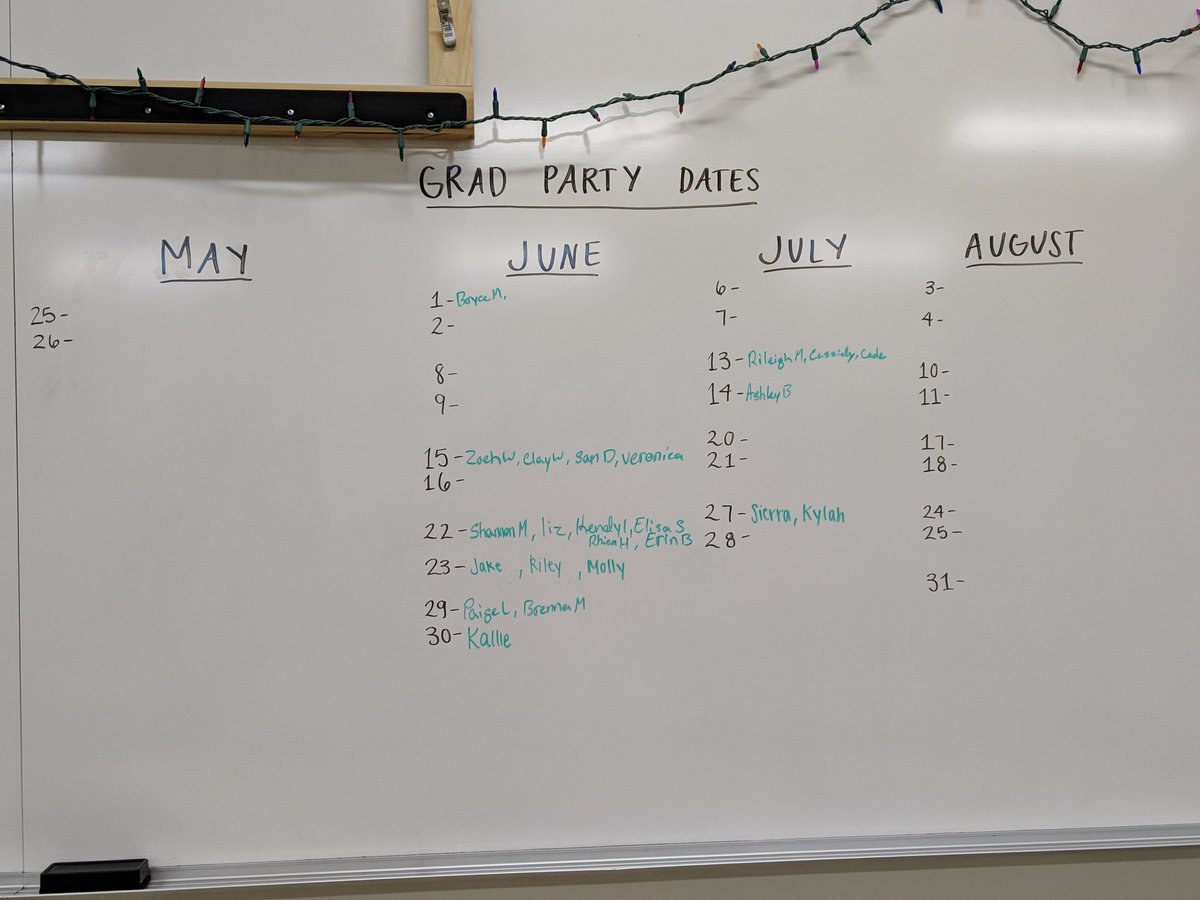 GRAD PARTY DATES
MAY
25-
26-
JUNE
1- Boyce M.
2-
8-
9-
15- Zach W, Clay W, Sam D, Veronica
16-
22- Shannon M, liz, Kendyl, Elisa S
Rhien H, Erin B
23- Jake , Riley , Molly
29- Paige L, Brenna M
30- Kallie
JULY
6-
7-
13- Rileigh M, Cassidy, Cade
14- Ashley B
20-
21-
27- Sierra, Kylah
28-
AUGUST
3-
4-
10-
11-
17-
18-
24-
25-
31-